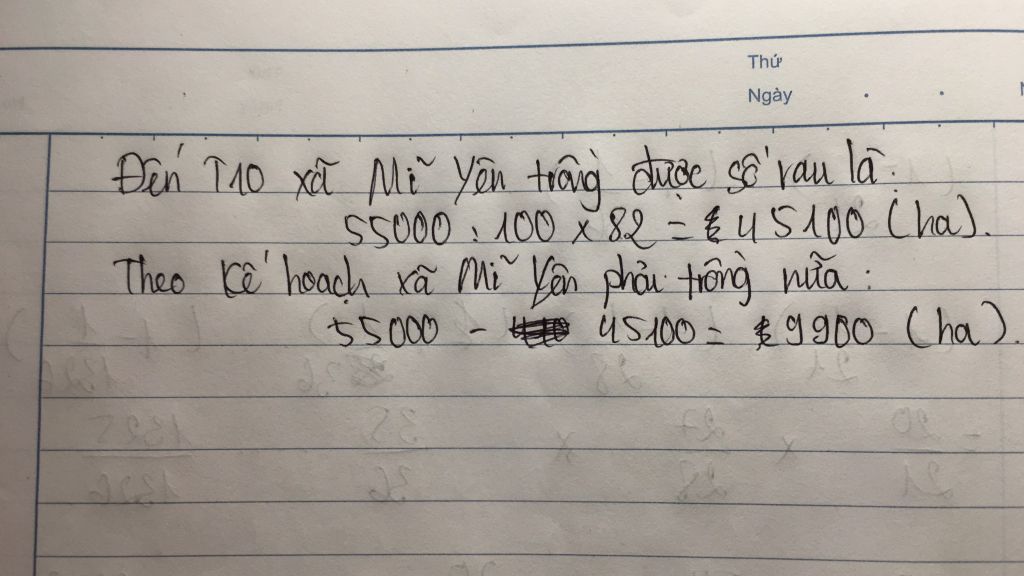 Thứ
Ngày
Đến T10 xã Mĩ Yên trồng được số rau là:
55000 : 100 x 82 = 45100 (ha).
Theo kế hoạch xã Mĩ Yên phải trồng nữa :
55000 - 45100 = 9900 (ha).